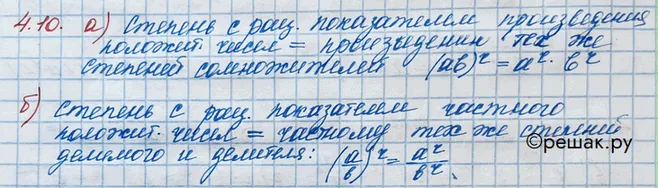 4.10. а) Степень с рац. показателем произведения
положит. чисел = произведении тех же
степеней сомножителей (ab)^r = a^r · b^r
б) Степень с рац. показателем частного
положит. чисел = частному тех же степеней
делимого и делителя: (a/b)^r = a^r/b^r.
©решак.ру